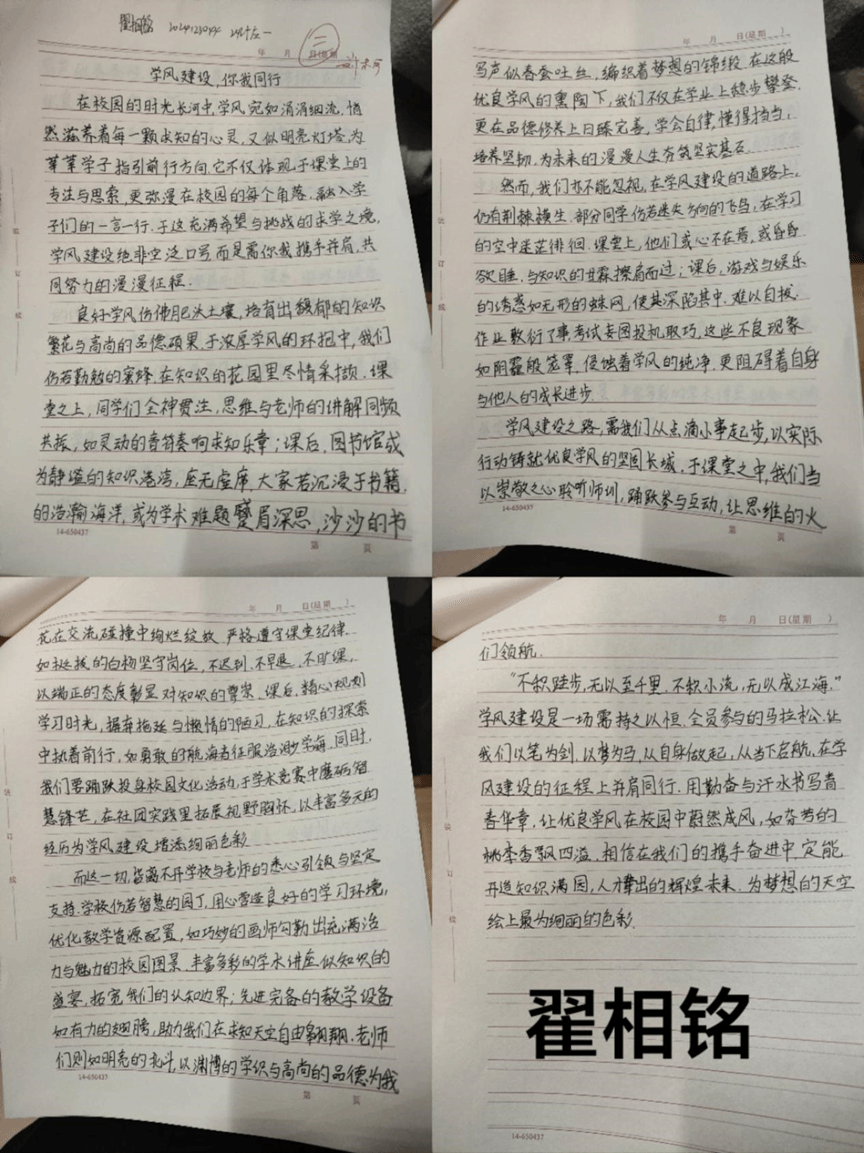 翟相铭
年 月 日(星期
学风建设,你我同行
在校园的时光长河中,学风宛如涓涓细流,悄
然滋养着每一颗求知的心灵,又似明亮灯塔,为
莘莘学子指引前行方向,它不仅体现于课堂上的
专注与思索,更弥漫在校园的每个角落,融入学
子们的一言一行.于这充满希望与挑战的求学之境,
学风建设绝非空泛口号而是需你我携手并肩,共
同努力的漫漫征程.
良好学风仿佛肥沃土壤,培育出馥郁的知识
繁花与高尚的品德硕果,于浓厚学风的环抱中,我们
仿若勤勉的蜜蜂,在知识的花园里尽情采撷.课
堂之上,同学们全神贯注,思维与老师的讲解同频
共振,如灵动的音符奏响求知乐章;课后,图书馆成
为静谧的知识港湾,座无虚席,大家若沉浸于书籍
的浩瀚海洋,或为学术难题蹙眉深思,沙沙的书
14-650437
第 页
年 月 日(星期 )
写声似春蚕吐丝,编织着梦想的锦缎.在这般
优良学风的熏陶下,我们不仅在学业上稳步攀登,
更在品德修养上日臻完善,学会自律,懂得担当,
培养坚韧,为未来的漫漫人生夯筑坚实基石.
然而,我们亦不能忽视,在学风建设的道路上,
仍有荆棘横生.部分同学仿若迷失方向的飞鸟,在学习
的空中迷茫徘徊.课堂上,他们或心不在焉,或昏昏
欲睡,与知识的甘霖擦肩而过;课后,游戏与娱乐
的诱惑如无形的蛛网,使其深陷其中,难以自拔.
作业敷衍了事,考试妄图投机取巧,这些不良现象
如阴霾般笼罩,侵蚀着学风的纯净,更阻碍着自身
与他人的成长进步.
学风建设之路,需我们从点滴小事起步,以实际
行动铸就优良学风的坚固长城,于课堂之中,我们当
以崇敬之心聆听师训,踊跃参与互动,让思维的火
14-650437
第 页
年 月 日(星期 )
花在交流碰撞中绚烂绽放.严格遵守课堂纪律,
如挺拔的白杨坚守岗位,不迟到,不早退,不旷课,
以端正的态度彰显对知识的尊崇.课后,精心规划
学习时光,摒弃拖延与懒惰的陋习,在知识的探索
中执着前行,如勇敢的航海者征服浩渺学海.同时,
我们要踊跃投身校园文化活动,于学术竞赛中磨砺智
慧锋芒,在社团实践里拓展视野胸怀,以丰富多元的
经历为学风建设增添绚丽色彩.
而这一切,皆离不开学校与老师的悉心引领与坚定
支持.学校仿若智慧的园丁,用心营造良好的学习环境,
优化教学资源配置,如巧妙的画师勾勒出充满活
力与魅力的校园图景.丰富多彩的学术讲座似知识的
盛宴,拓宽我们的认知边界;先进完备的教学设备
如有力的翅膀,助力我们在求知天空自由翱翔.老师
们则如明亮的北斗,以渊博的学识与高尚的品德为我
14-650437
第 页
年 月 日(星期 )
们领航.
“不积跬步,无以至千里.不积小流,无以成江海.”
学风建设是一场需持之以恒、全员参与的马拉松.让
我们以笔为剑,以梦为马,从自身做起,从当下启航,在学
风建设的征程上并肩同行.用勤奋与汗水书写青
春华章,让优良学风在校园中蔚然成风,如芬芳的
桃李香飘四溢.相信在我们的携手奋进中,定能
开造知识满园,人才辈出的辉煌未来.为梦想的天空
绘上最为绚丽的色彩.
翟相铭
14-650437